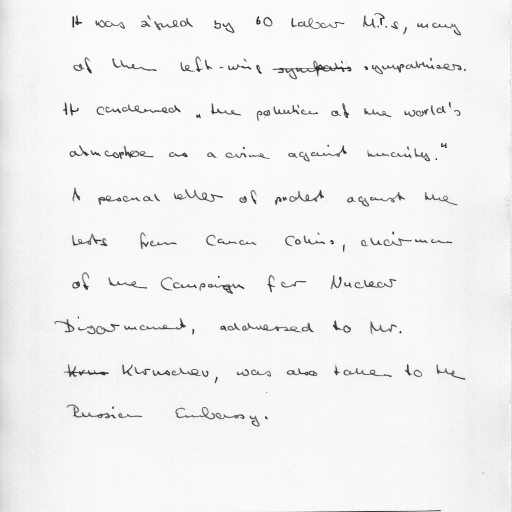 It was signed by 60 Labour M.P.s, many
of them left-wing sympatis sympathisers.
It condemned "the pollution of the world's
atmosphere as a crime against humanity."
A personal letter of protest against the
tests from Canon Collins, chairman
of the Campaign for Nuclear
Disarmament, addressed to Mr.
Krus Khruschev, was also taken to the
Russian Embassy.